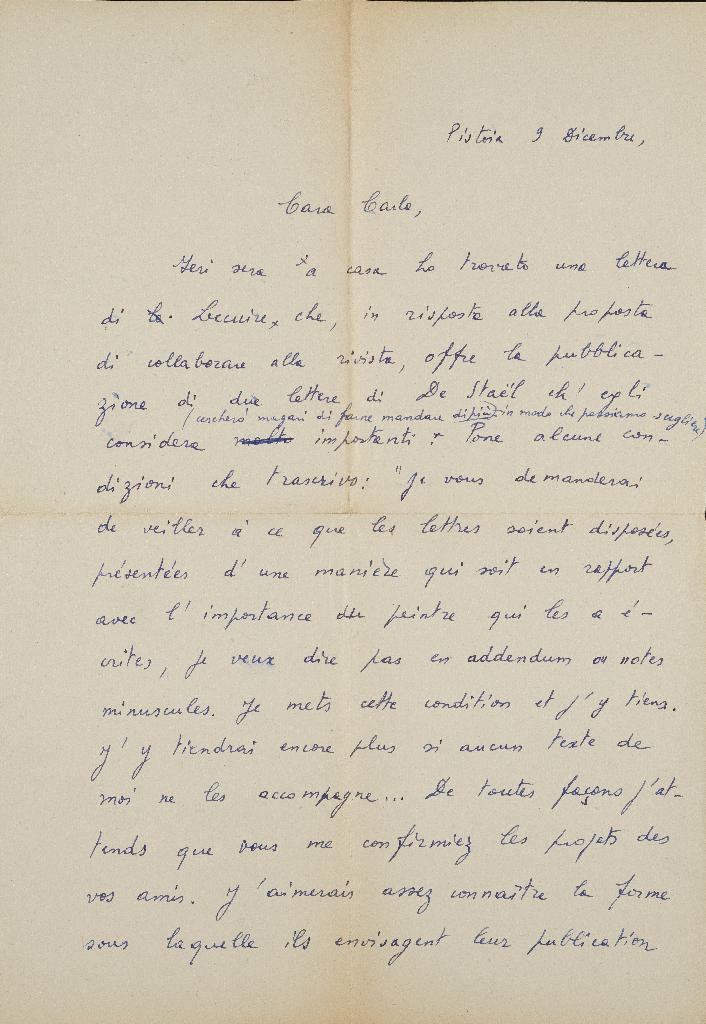 Pistoia 9 Dicembre,
Caro Carlo,
Ieri sera a casa ho trovato una lettera
di Lecuire, che, in risposta alla proposta
di collaborare alla rivista, offre la pubblica-
zione di due lettere di De Staël ch' egli
(cercherò magari di farne mandare di più in modo che possiamo scegliere)
considera molto importanti. Pone alcune con-
dizioni che trascrivo: "Je vous demanderai
de veiller à ce que les lettres soient disposées,
présentées d' une manière qui soit en rapport
avec l' importance du peintre qui les a é-
crites, je veux dire pas en addendum ou notes
minuscules. Je mets cette condition et j' y tiens.
J' y tiendrai encore plus si aucun texte de
moi ne les accompagne... De toutes façons j'at-
tends que vous me confirmiez les projets des
vos amis. J' aimerais assez connaître la forme
sous laquelle ils envisagent leur publication